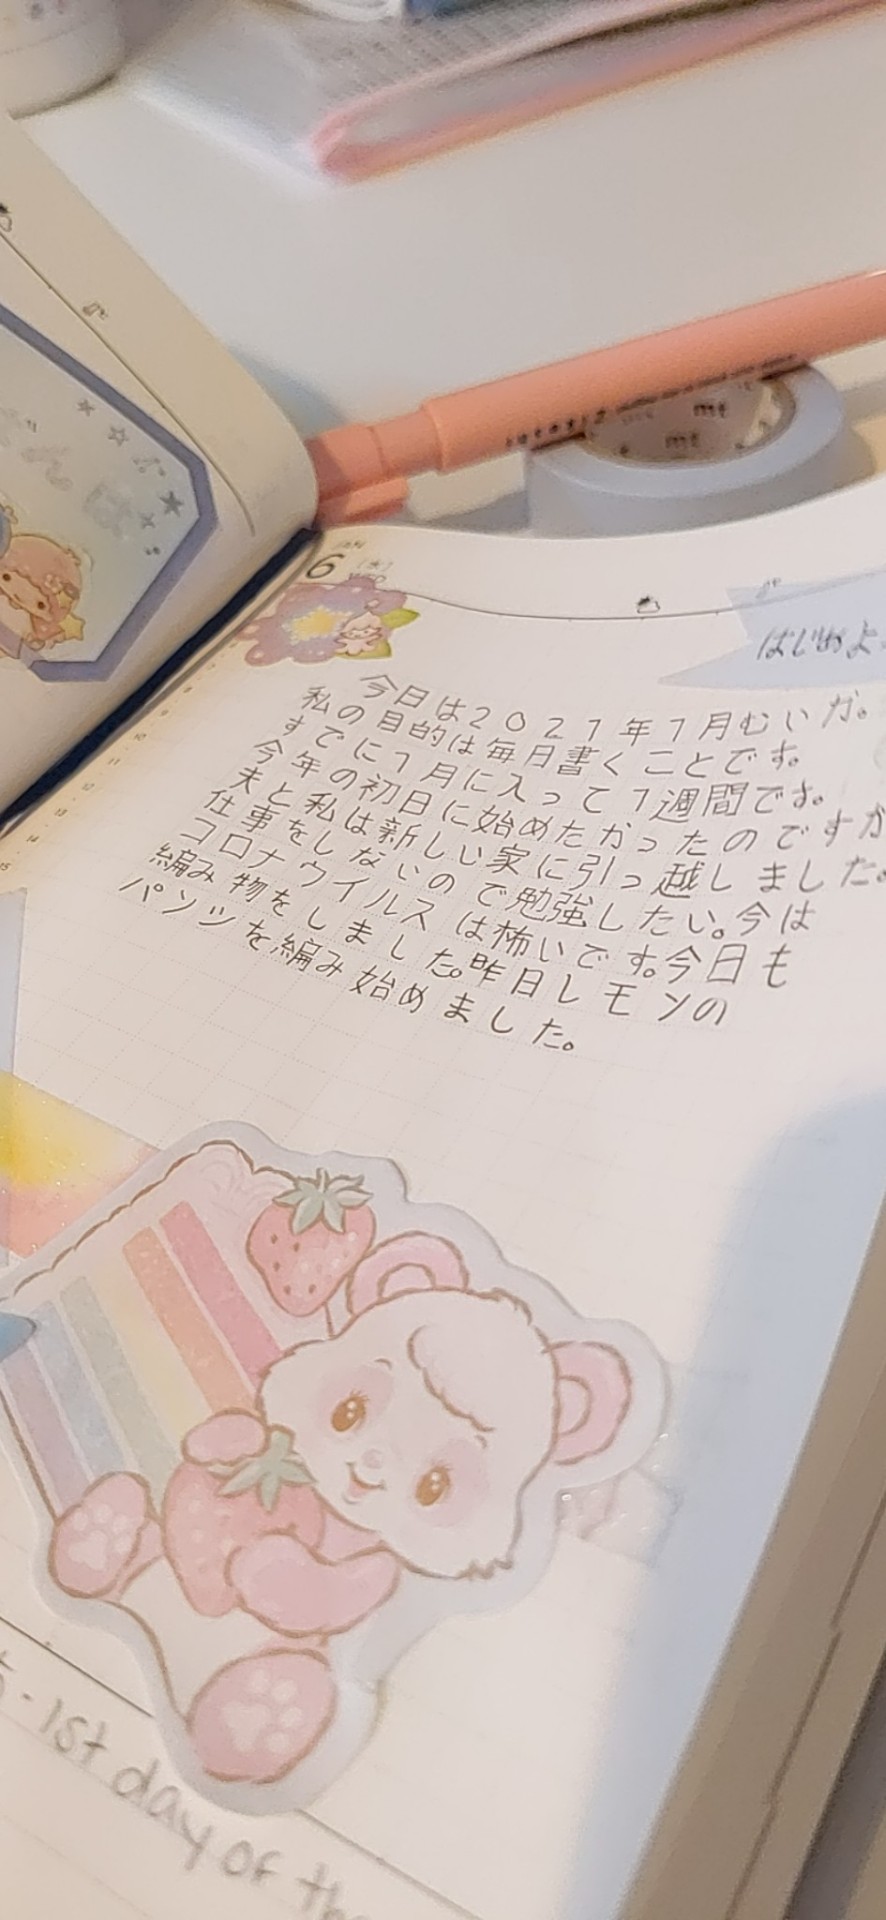 mt
mt
JAN
6 (水)
WED
はじめよ
今日は2021年1月むいか。
私の目的は毎日書くことです。
すでに1月に入って1週間です。
今年の初日に始めたかったのですが
夫と私は新しい家に引っ越しました。
仕事をしないので勉強したい。今は
コロナウイルスは怖いです。今日も
編み物をしました。昨日レモンの
パンツを編み始めました。
1st day of the